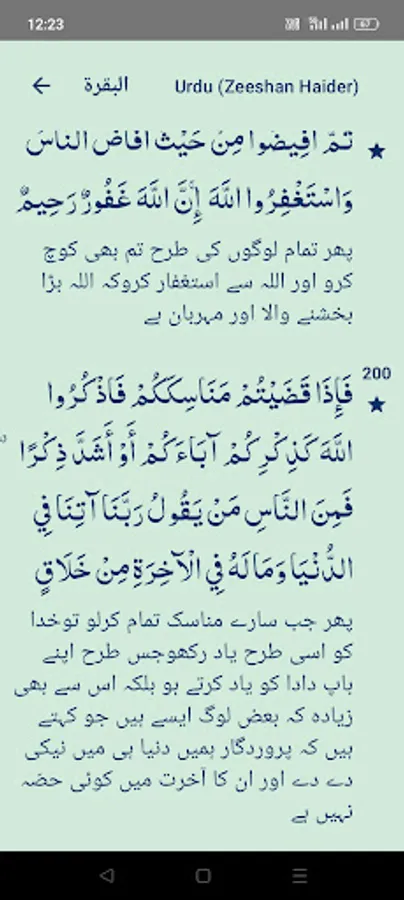 12:23
67
البقرة
Urdu (Zeeshan Haider)
ثمّ افِيضوا مِنْ حَيْث افاض الناسَ
وَاسْتَغْفِرُوا اللَّهَ إِنَّ اللَّهَ غَفُورٌ رَحِيمٌ
پھر تمام لوگوں کی طرح تم بھی کوچ
کرو اور اللہ سے استغفار کروکہ اللہ بڑا
بخشنے والا اور مہربان ہے
200
فَإِذَا قَضَيْتُمْ مَنَاسِكَكُمْ فَاذْكُرُوا
اللَّهَ كَذِكْرِكُمْ آبَاءَكُمْ أَوْ أَشَدَّ ذِكْرًا
فَمِنَ النَّاسِ مَنْ يَقُولُ رَبَّنَا آتِنَا فِي
الدُّنْيَا وَمَا لَهُ فِي الْآخِرَةِ مِنْ خَلَاقٍ
پھر جب سارے مناسک تمام کرلو توخدا
کو اسی طرح یاد رکھوجس طرح اپنے
باپ دادا کو یاد کرتے ہو بلکہ اس سے بھی
زیادہ کہ بعض لوگ ایسے ہیں جو کہتے
ہیں کہ پروردگار ہمیں دنیا ہی میں نیکی
دے دے اور ان کا آخرت میں کوئی حصّہ
نہیں ہے